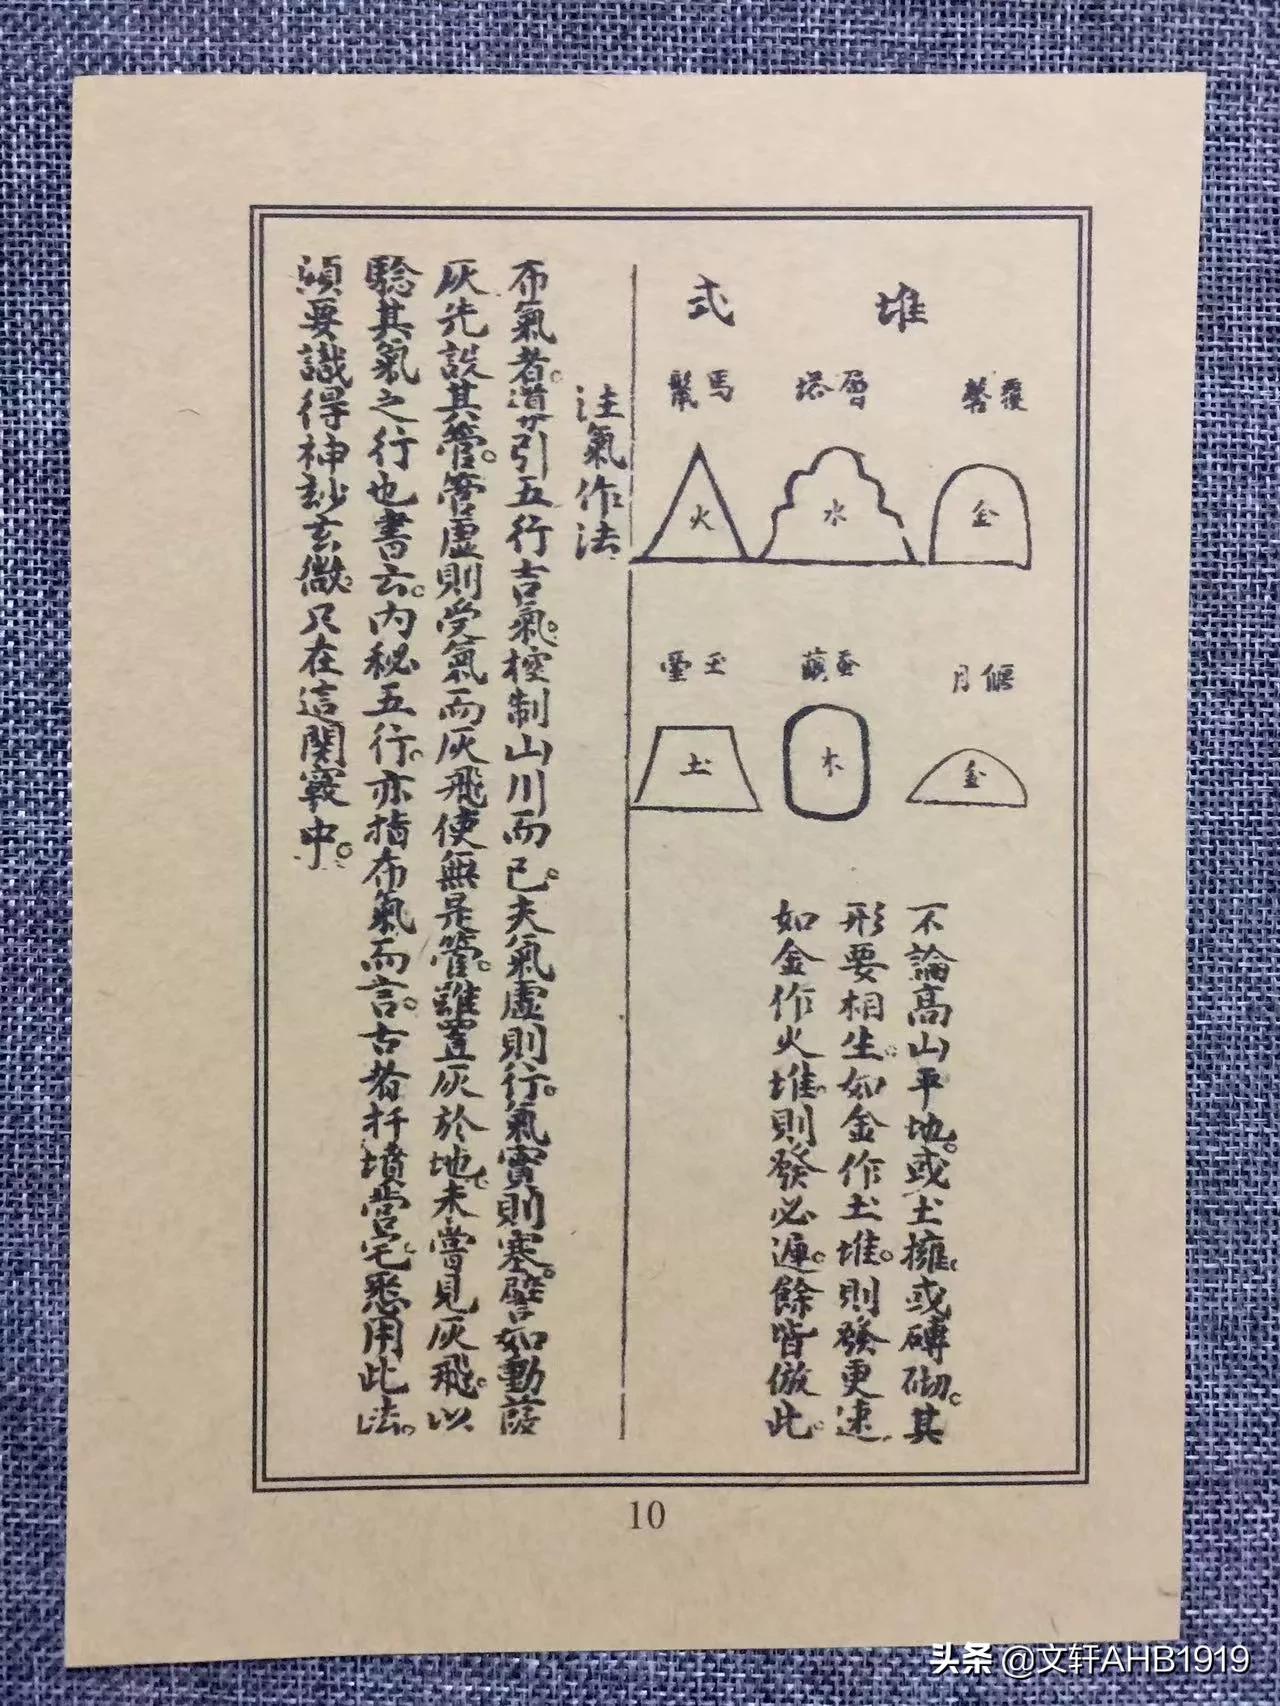 堆式
覆磬
層塔
馬鬣
金
水
火
偃月
蚕繭
玉臺
金
木
土
不論高山平地。或土擁。或磚砌。其
形要相生。如金作土堆。則發更速
如金作火堆。則發必遲。餘皆倣此。
注氣作法
布氣者。導引五行吉氣。控制山川而已。夫氣虛則行。氣實則塞。譬如動葭
灰先設其管。管虛則受氣而灰飛使無是管。雖置灰於地。未嘗見灰飛。以
騐其氣之行也書云。內秘五行。亦指布氣而言。古者扦墳営宅。悉用此法。
須要識得神玅玄微。只在這関竅中。
10
头条 @文轩AHB1919